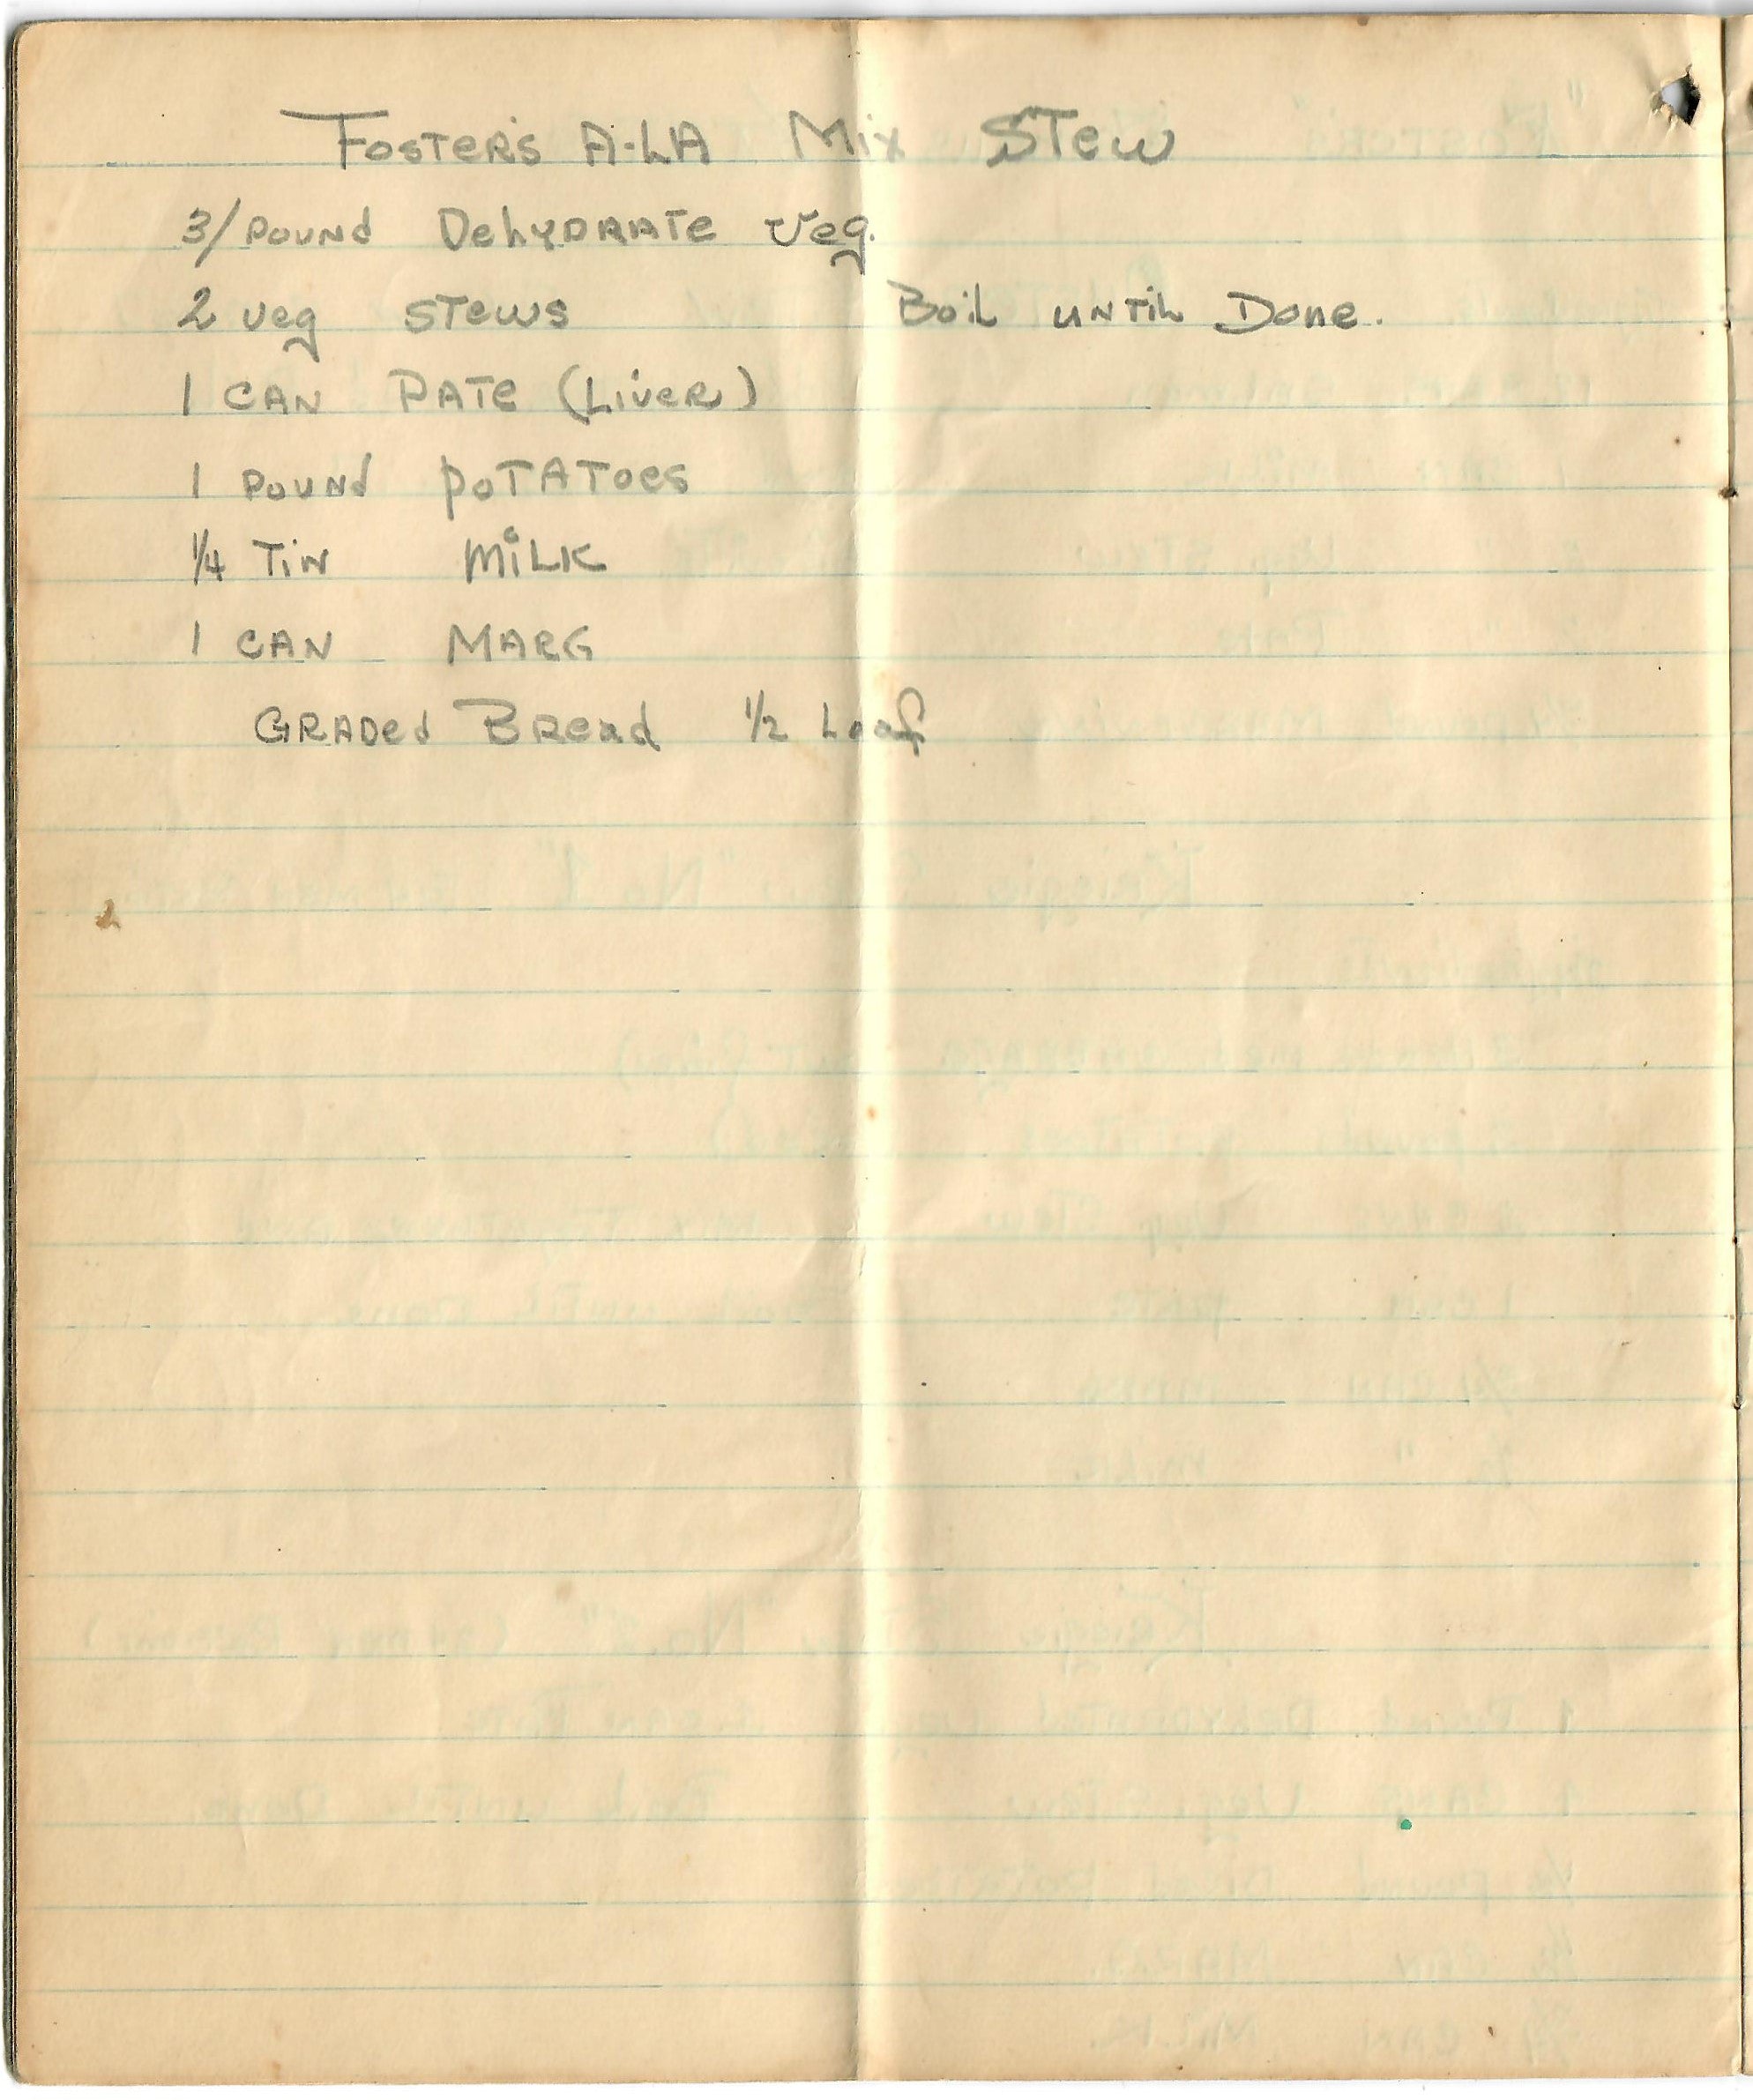 FOSTER'S A-LA Mix STew
3/ POUNd DehYDRATe veg.
2 veg STews Boil UNTil Done.
1 CAN PATe (LiveR)
1 POUNd poTAToes
1/4 TiN MiLK
1 CAN MARG
GRADed BRead 1/2 Loaf